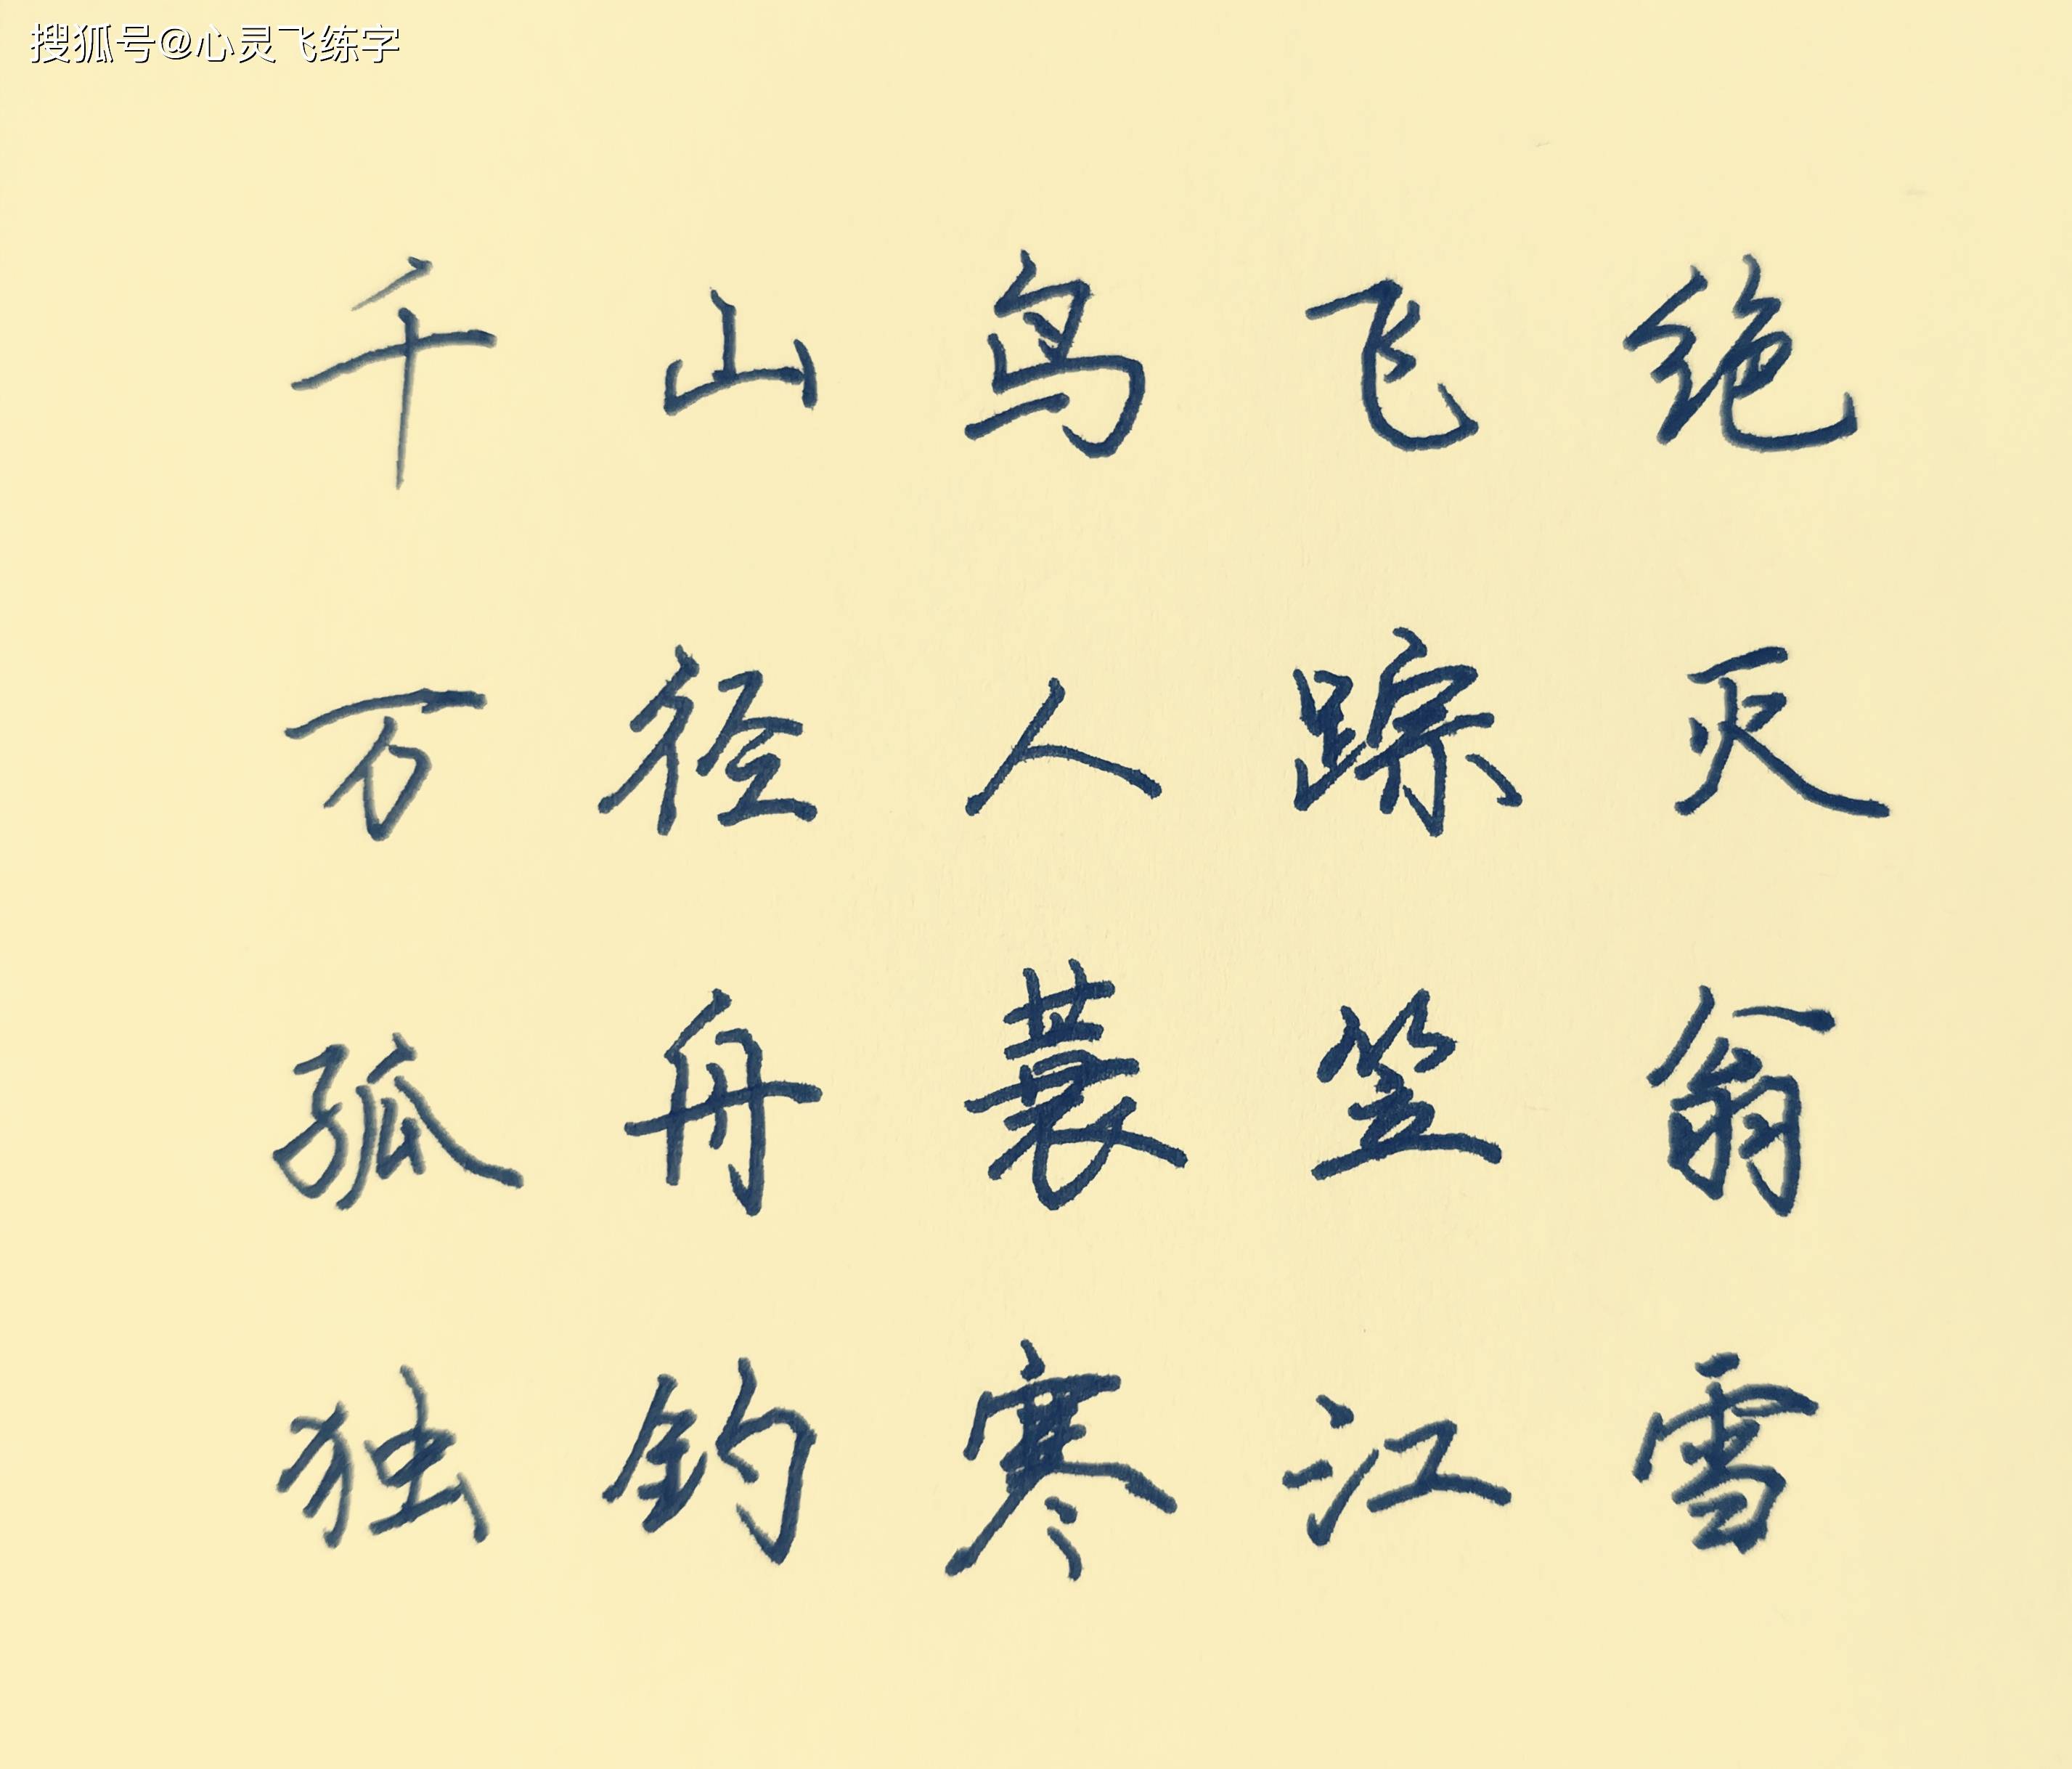 搜狐号@心灵飞练字
千山鸟飞绝
万径人踪灭
孤舟蓑笠翁
独钓寒江雪